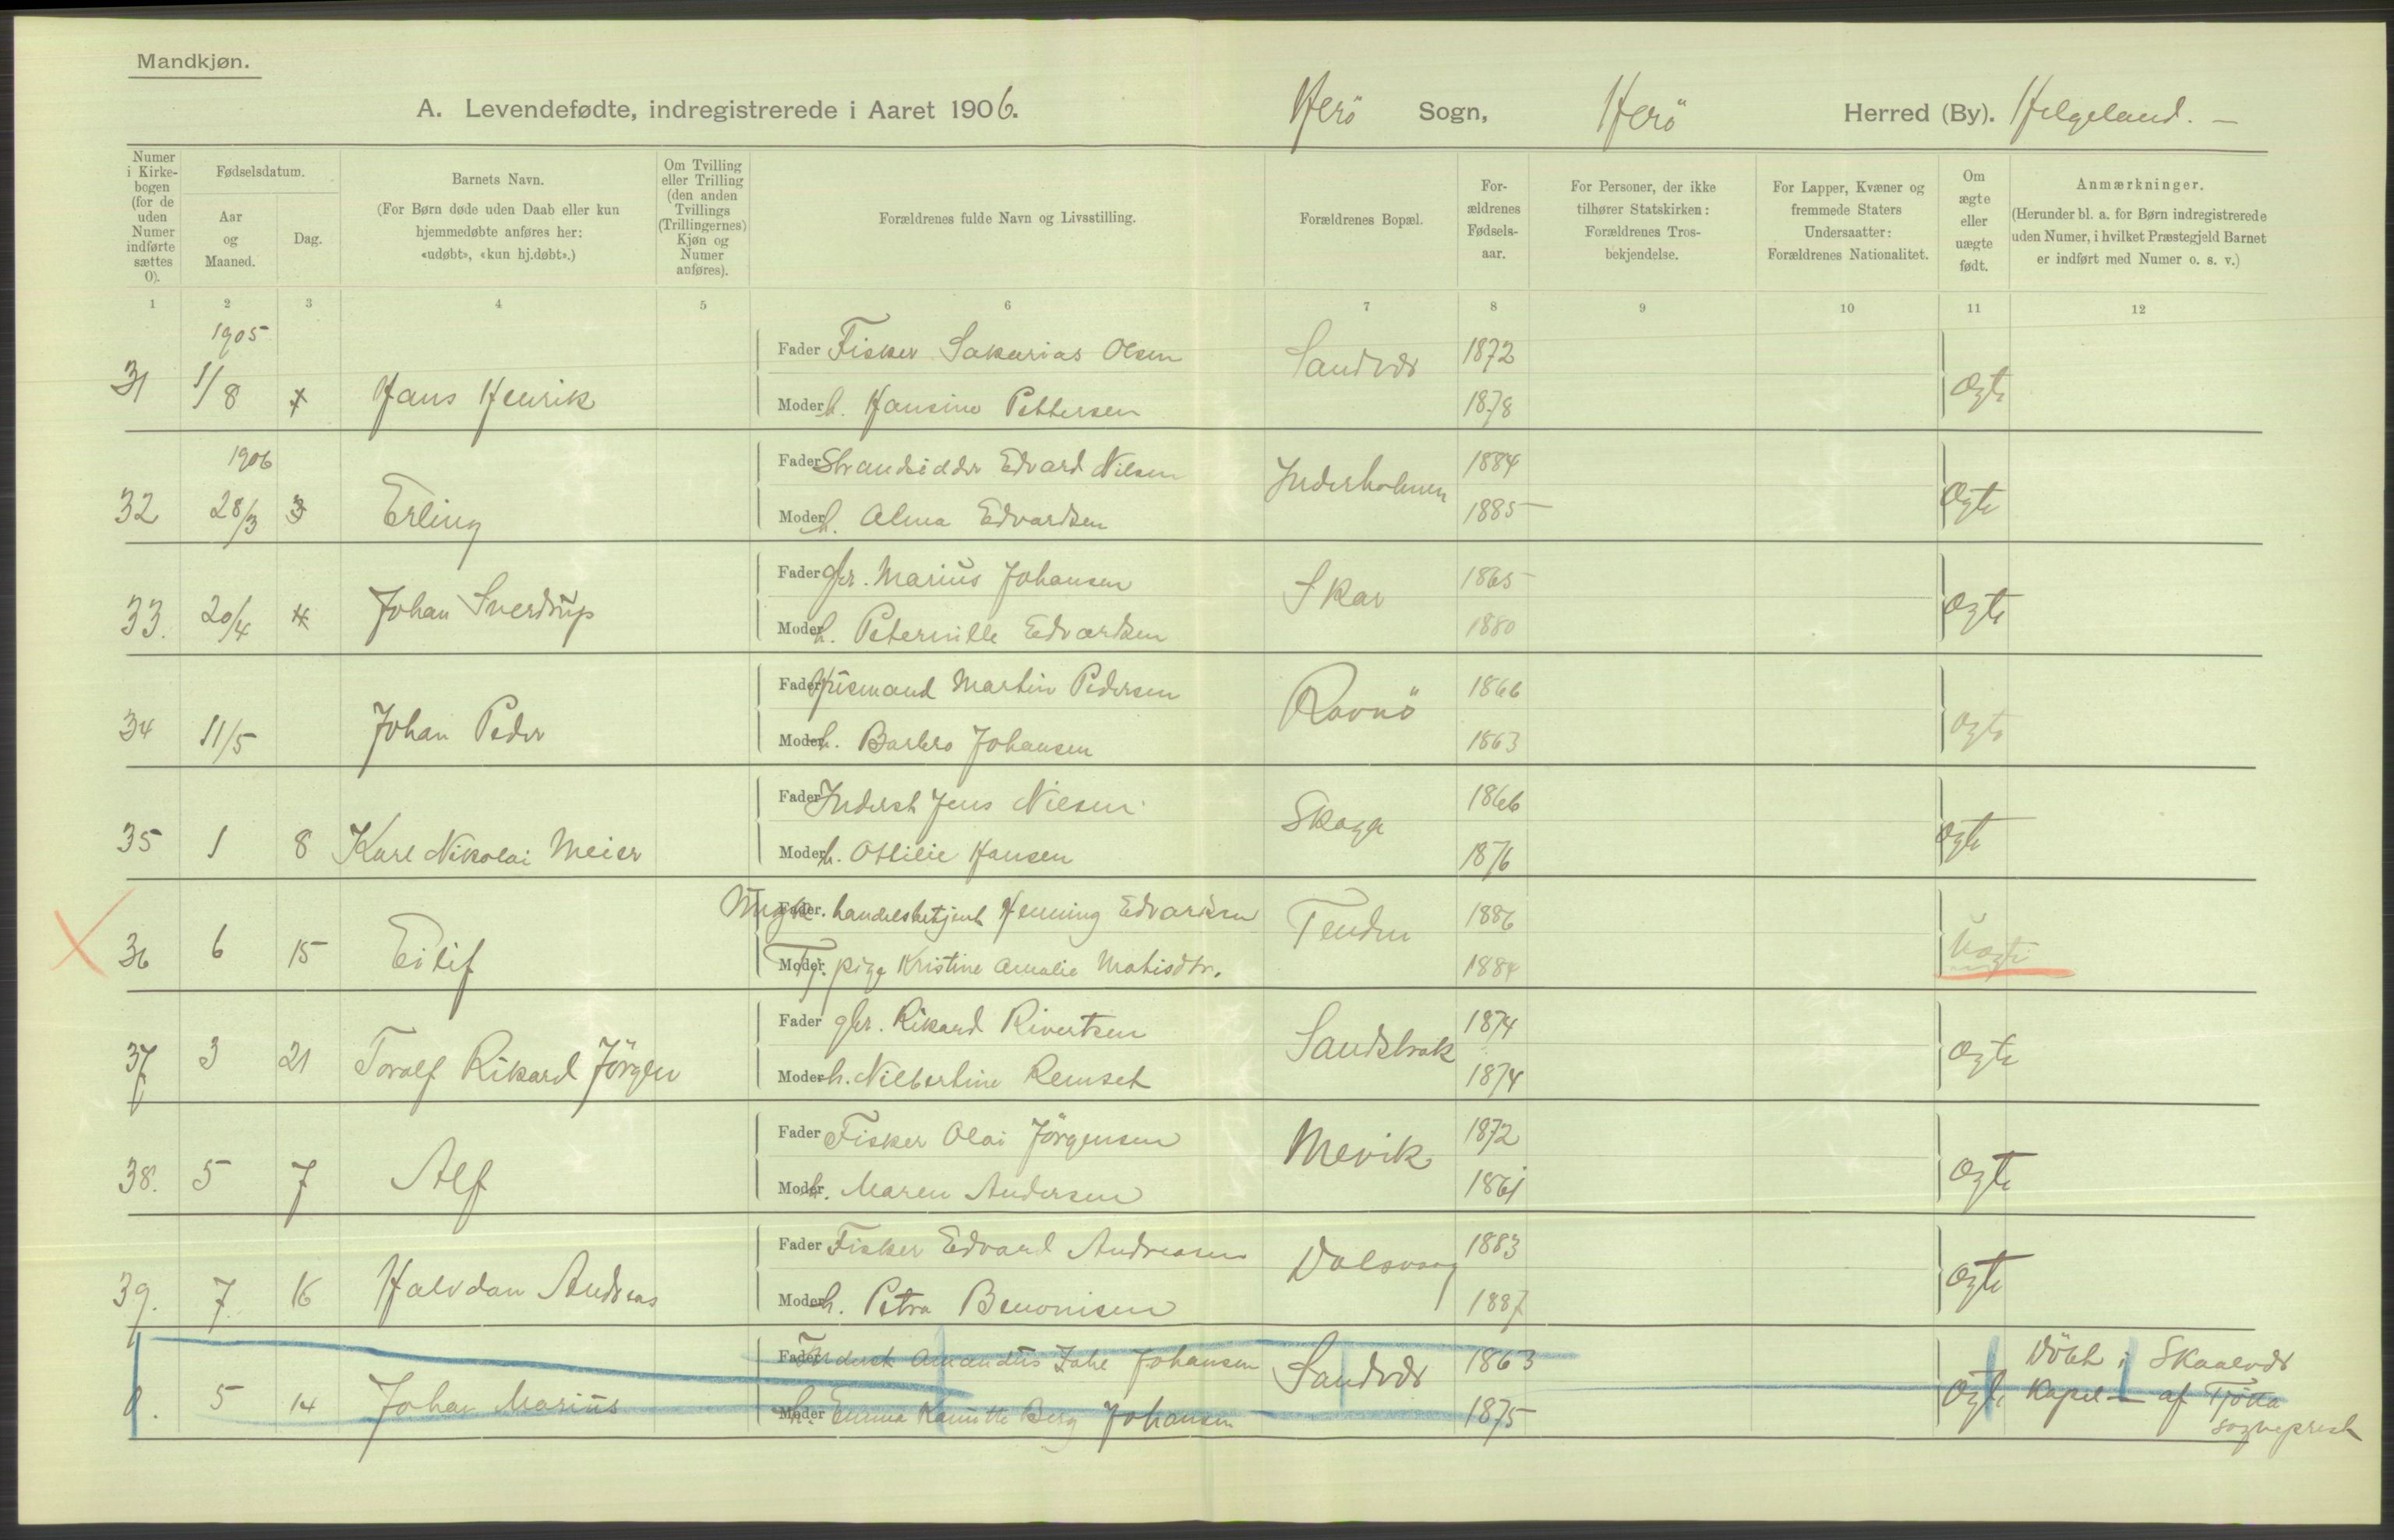 Mandkjøn.
A. Levendefødte, indregistrerede i Aaret 1906. Herö Sogn, Herö Herred (By). Helgeland. —
Numer i Kirkebogen (for de uden Numer indførte sættes 0).
Fødselsdatum.
Aar og Maaned.
Dag.
Barnets Navn.
(For Børn døde uden Daab eller kun hjemmedøbte anføres her: «udøbt», «kun hj.døbt».)
Om Tvilling eller Trilling (den anden Tvillings (Trillingernes) Kjøn og Numer anføres).
Forældrenes fulde Navn og Livsstilling.
Forældrenes Bopæl.
Forældrenes Fødselsaar.
For Personer, der ikke tilhører Statskirken: Forældrenes Trosbekjendelse.
For Lapper, Kvæner og fremmede Staters Undersaatter: Forældrenes Nationalitet.
Om ægte eller uægte født.
Anmærkninger.
(Herunder bl. a. for Børn indregistrerede uden Numer, i hvilket Præstegjeld Barnet er indført med Numer o. s. v.)
1 2 3 4 5 6 7 8 9 10 11 12
1905
Fader Fisker Sakarias Olsen Sandvær 1872
31 1/8 Hans Henrik Moder h. Hansine Pettersen 1878 Ægte
1906
Fader Strandsidder Edvard Nilsen Inderholmen 1884
32 28/3 3 Erling Moder h. Alma Edvardsen 1885 Ægte
Fader gbr. Marius Johansen Skar 1865
33. 20/4 4 Johan Sverdrup Moder h. Petermille Edvardsen 1880 Ægte
Fader Husmand Martin Pedersen Ravnö 1866
34 11/5 Johan Peder Moder h. Barbro Johansen 1863 Ægte
Fader Inderst Jens Nilsen Skaga 1866
35 1 8 Karl Nikolai Meier Moder h. Otilie Hansen 1876 Ægte
Fader Ungk. handelsbetjent Henning Edvardsen Tenden 1886
36 6 15 Eilif Moder Tj. pige Kristine Amalie Matisdtr. 1884 Uægte
Fader gbr. Rikard Rivertsen Sandstrak 1874
37 3 21 Toralf Rikard Jörgen Moder h. Nilbertine Remset 1874 Ægte
Fader Fisker Olai Jörgensen Mevik 1872
38. 5 7 Alf Moder h. Maren Andersen 1861 Ægte
Fader Fisker Edvard Andreasen Valsvaag 1883
39. 7. 16 Halvdan Andreas Moder h. Petra Benonisen 1887 Ægte
Fader Inderst Amandus Johansen Sandvær 1863 Döbt i Skaalvær
0. 5 14 Johan Marius Moder h. Emma Kamitte Berg Johansen 1875 Ægte Kapel — af Tjötta
sogneprest